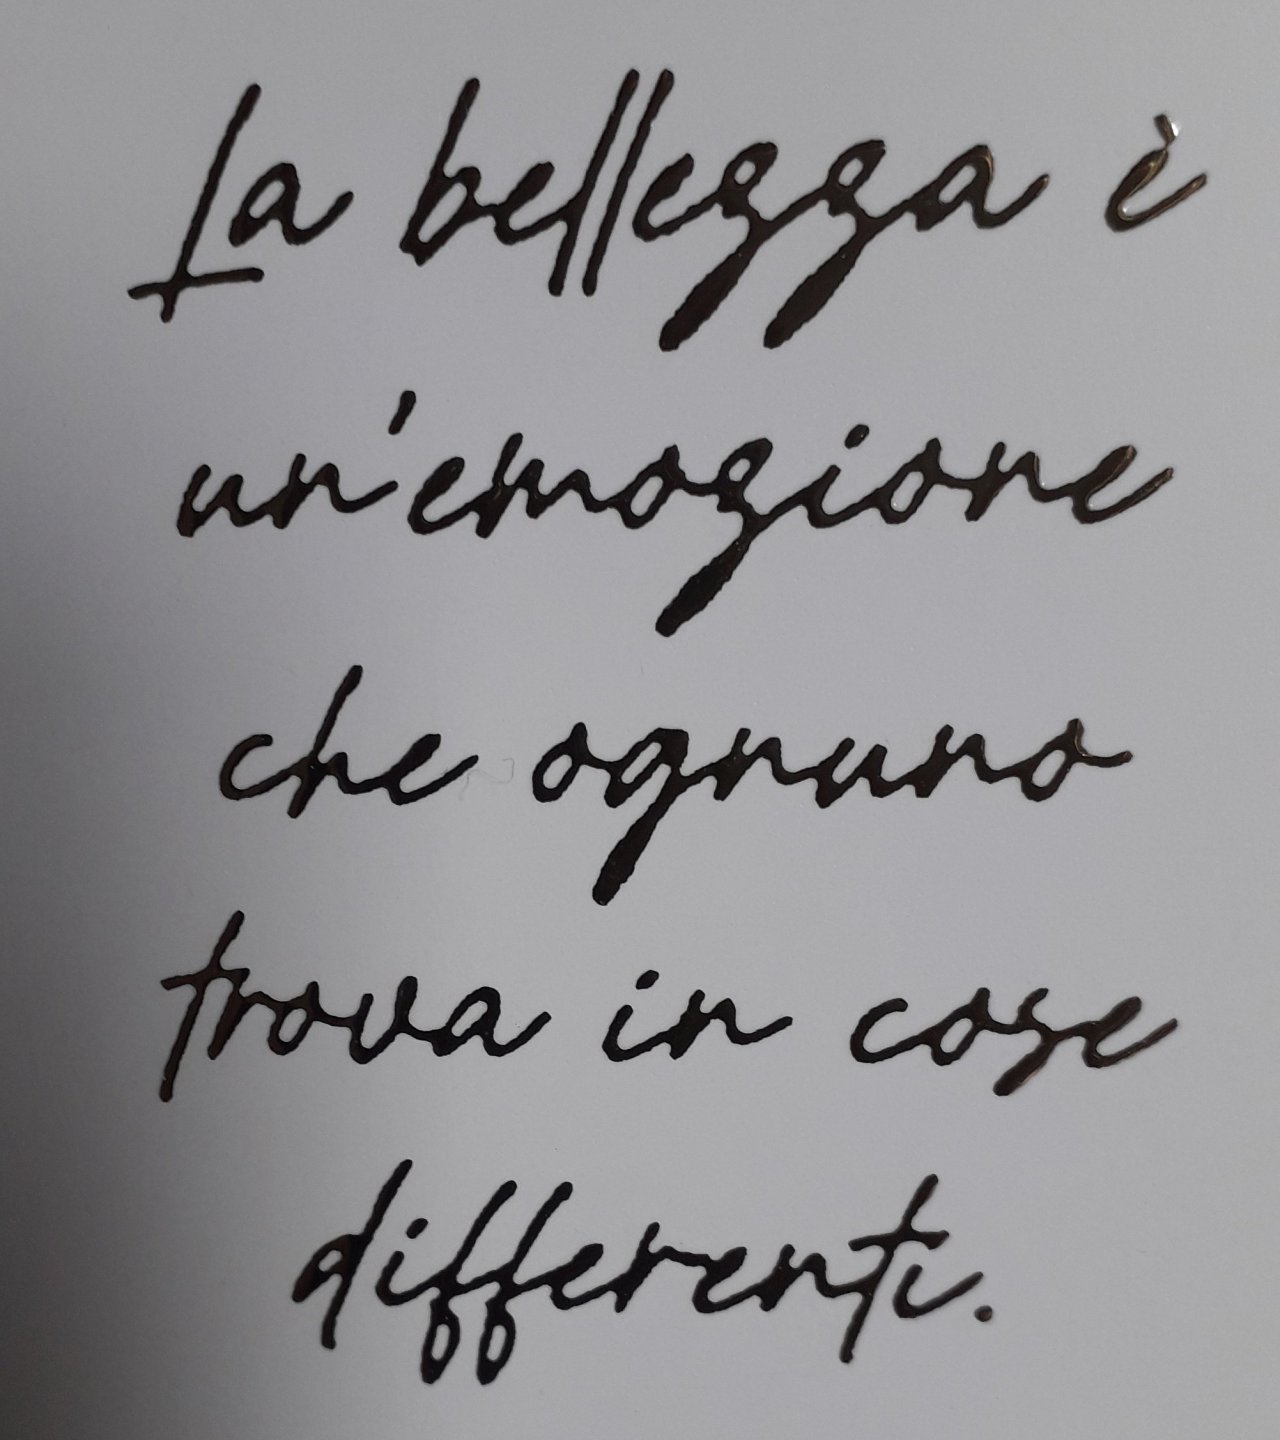 La bellezza è
un'emozione
che ognuno
trova in cose
differenti.